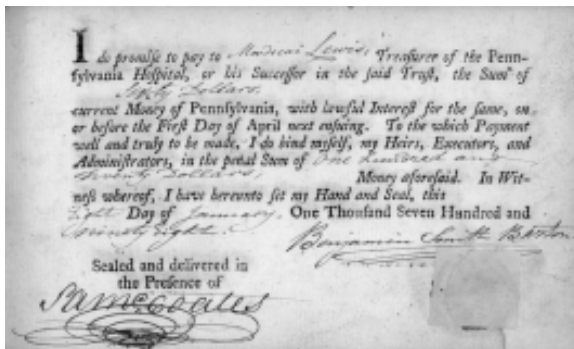 I do promise to pay to Mordecai Lewis, Treasurer of the Penn-
ſylvania Hoſpital, or his Succeſſor in the ſaid Truſt, the Sum of
Sixty Dollars.
current Money of Pennſylvania, with lawful Intereſt for the ſame, on
or before the Firſt Day of April next enſuing. To the which Payment
well and truly to be made, I do bind myſelf, my Heirs, Executors, and
Adminiſtrators, in the penal Sum of One hundred and
twenty Dollars, Money aforeſaid. In Wit-
neſs whereof, I have hereunto ſet my Hand and Seal, this
Eight Day of January, One Thouſand Seven Hundred and
Ninety Eight.
Benjamin Smith Barton
Sealed and delivered in
the Preſence of
Saml Coates